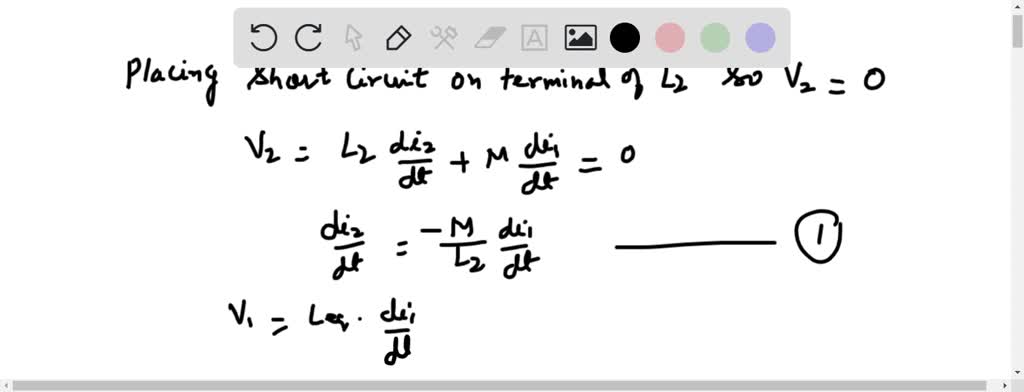 Placing short Circuit on terminal of L2 so V2 = 0
V2 = L2 di2/dt + M di1/dt = 0
di2/dt = -M/L2 di1/dt ——— 1
V1 = Leq. di1/dt